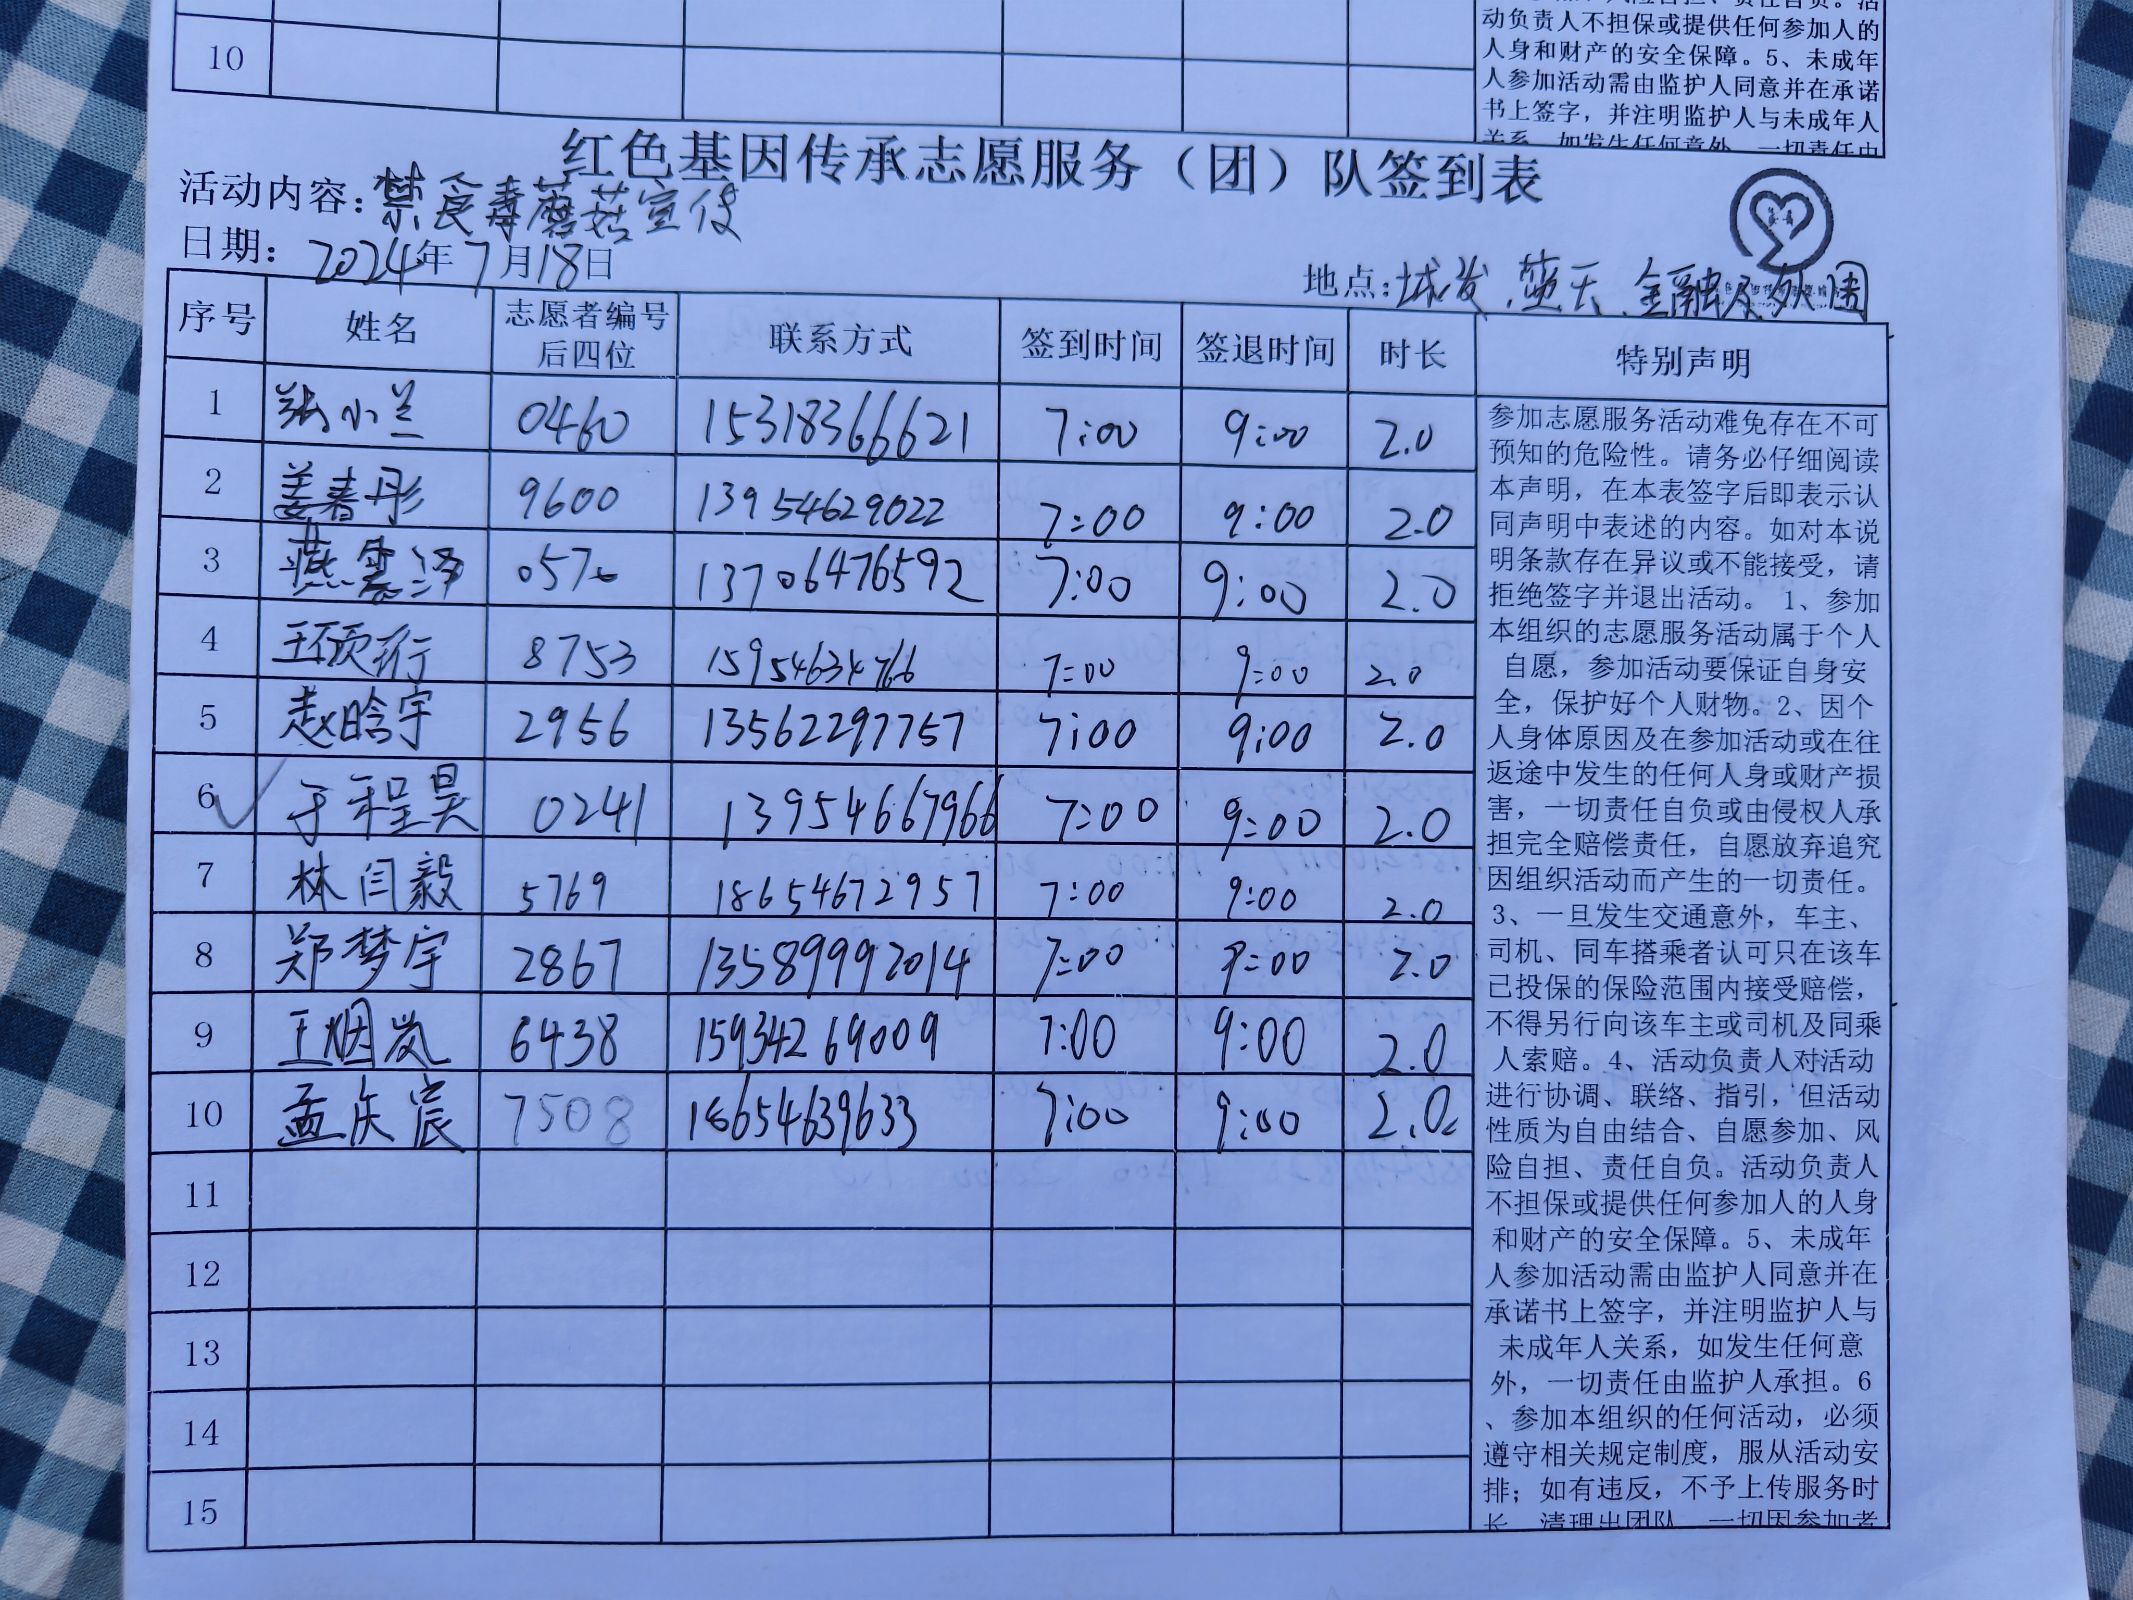 动负责人不担保或提供任何参加人的
人身和财产的安全保障。5、未成年
人参加活动需由监护人同意并在承诺
书上签字，并注明监护人与未成年人
关系，如发生任何意外，一切责任由
10
红色基因传承志愿服务（团）队签到表
活动内容：禁食毒蘑菇宣传
日期：2024年7月18日
地点：城发、蓝天、金融及外围
序号 姓名 志愿者编号后四位 联系方式 签到时间 签退时间 时长 特别声明
1 张小兰 0460 15318366621 7:00 9:00 2.0
2 姜春彤 9600 13954629022 7:00 9:00 2.0
3 燕震泽 0570 13706476592 7:00 9:00 2.0
4 王硕珩 8753 15954634766 7:00 9:00 2.0
5 赵晗宇 2956 13562297757 7:00 9:00 2.0
6 于程昊 0241 13954667966 7:00 9:00 2.0
7 林闫毅 5769 18654672957 7:00 9:00 2.0
8 郑梦宇 2867 13589992014 7:00 9:00 2.0
9 王烟岚 6438 15934269009 7:00 9:00 2.0
10 孟庆宸 7508 18654639633 7:00 9:00 2.0
11
12
13
14
15
参加志愿服务活动难免存在不可
预知的危险性。请务必仔细阅读
本声明，在本表签字后即表示认
同声明中表述的内容。如对本说
明条款存在异议或不能接受，请
拒绝签字并退出活动。 1、参加
本组织的志愿服务活动属于个人
自愿，参加活动要保证自身安
全，保护好个人财物。2、因个
人身体原因及在参加活动或在往
返途中发生的任何人身或财产损
害，一切责任自负或由侵权人承
担完全赔偿责任，自愿放弃追究
因组织活动而产生的一切责任。
3、一旦发生交通意外，车主、
司机、同车搭乘者认可只在该车
已投保的保险范围内接受赔偿，
不得另行向该车主或司机及同乘
人索赔。4、活动负责人对活动
进行协调、联络、指引，但活动
性质为自由结合、自愿参加、风
险自担、责任自负。活动负责人
不担保或提供任何参加人的人身
和财产的安全保障。5、未成年
人参加活动需由监护人同意并在
承诺书上签字，并注明监护人与
未成年人关系，如发生任何意
外，一切责任由监护人承担。6
、参加本组织的任何活动，必须
遵守相关规定制度，服从活动安
排；如有违反，不予上传服务时
长，清理出团队，一切因参加者